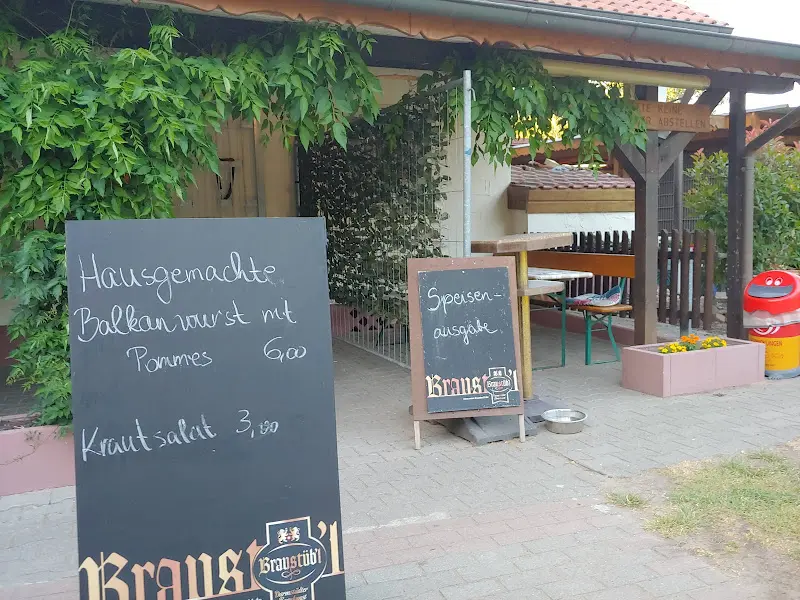 Hausgemachte
Balkanwurst mit
Pommes 6,00
Krautsalat 3,00
Braustüb'l
Braustüb'l
Darmstädter
Speisen-
ausgabe
Braust
ABSTELLEN